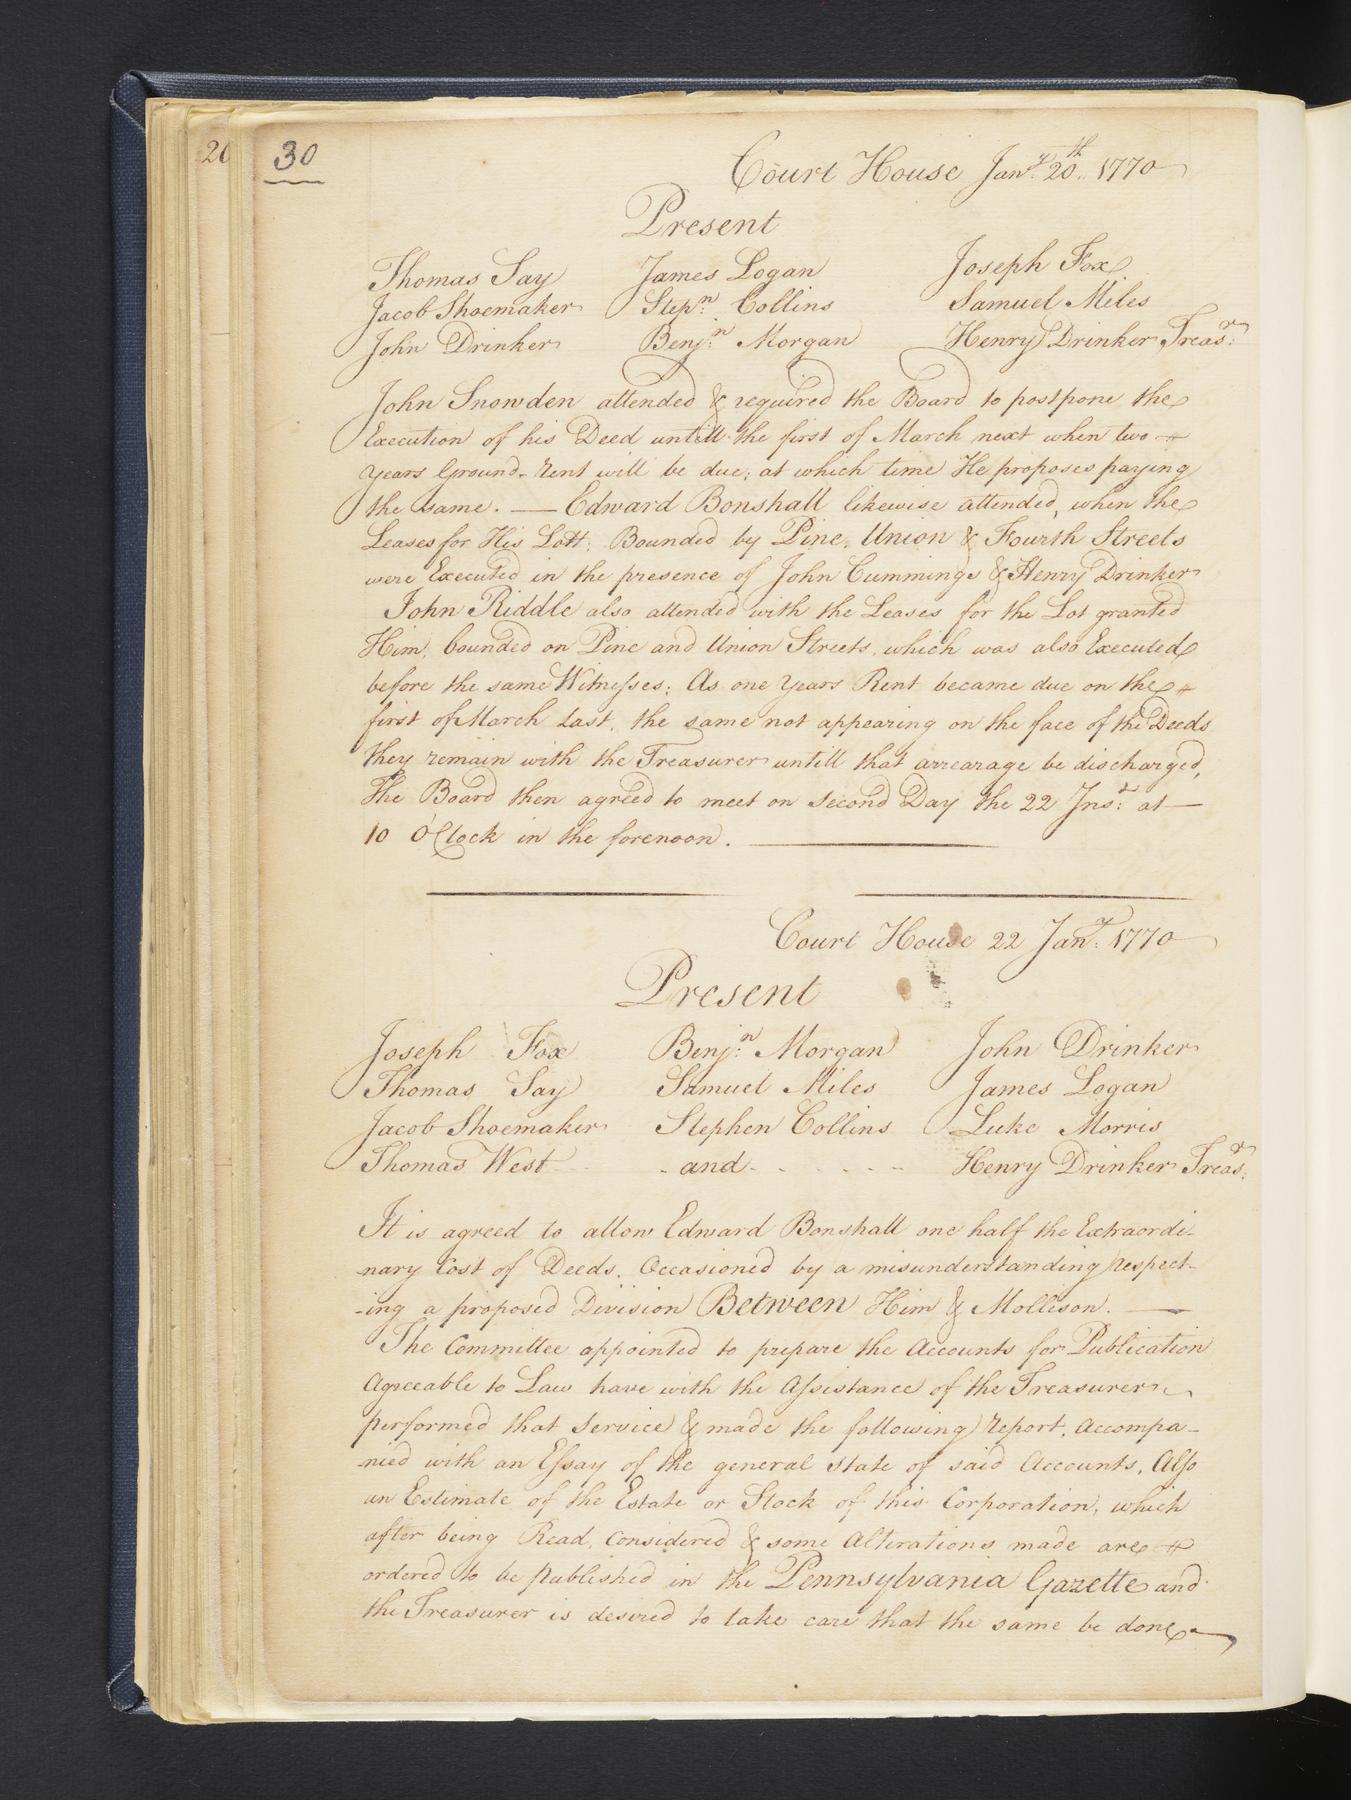 30
Court House Jany. 20th. 1770
Present
Thomas Say James Logan Joseph Fox
Jacob Shoemaker Stepn. Collins Samuel Miles
John Drinker Benjn. Morgan Henry Drinker Treasr:
John Snowden attended & required the Board to postpone the
Execution of his Deed untill the first of March next when two
years Ground-Rent will be due; at which time He proposes paying
the same. — Edward Bonshall likewise attended, when the
Leases for His Lott: Bounded by Pine, Union & Fourth Streets
were Executed in the presence of John Cummings & Henry Drinker
John Riddle also attended with the Leases for the Lot granted
Him, bounded on Pine and Union Streets, which was also Executed
before the same Witnesses; As one Years Rent became due on the
first of March Last, the same not appearing on the face of the Deeds
they remain with the Treasurer untill that arrearage be discharged,
The Board then agreed to meet on Second Day the 22 Inst: at —
10 O'Clock in the forenoon.
Court House 22 Jany: 1770
Present
Joseph Fox Benjn: Morgan John Drinker
Thomas Say Samuel Miles James Logan
Jacob Shoemaker Stephen Collins Luke Morris
Thomas West - and - Henry Drinker Treasr:
It is agreed to allow Edward Bonshall one half the Extraordi-
-nary Cost of Deeds, Occasioned by a misunderstanding respect-
-ing a proposed Division Between Him & Mollison. —
The Committee appointed to prepare the Accounts for Publication
Agreeable to Law have with the Assistance of the Treasurer
performed that Service & made the following report, accompa-
-nied with an Essay of the general state of said Accounts, Also
an Estimate of the Estate or Stock of this Corporation, which
after being Read, Considered & some Alterations made are
ordered to be published in the Pennsylvania Gazette and
the Treasurer is desired to take care that the same be done